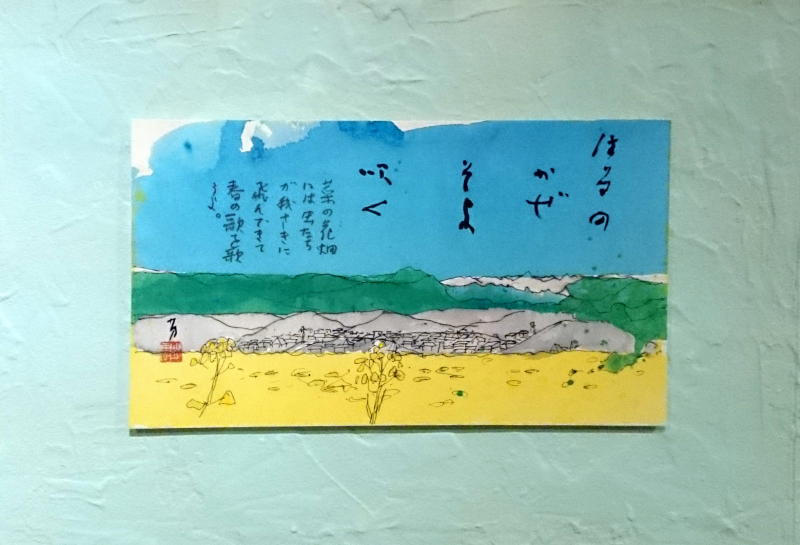 はるの
かぜ
そよ
吹く
菜の花畑
には虫たち
が我さきに
飛んできて
春の歌を歌
うよ。